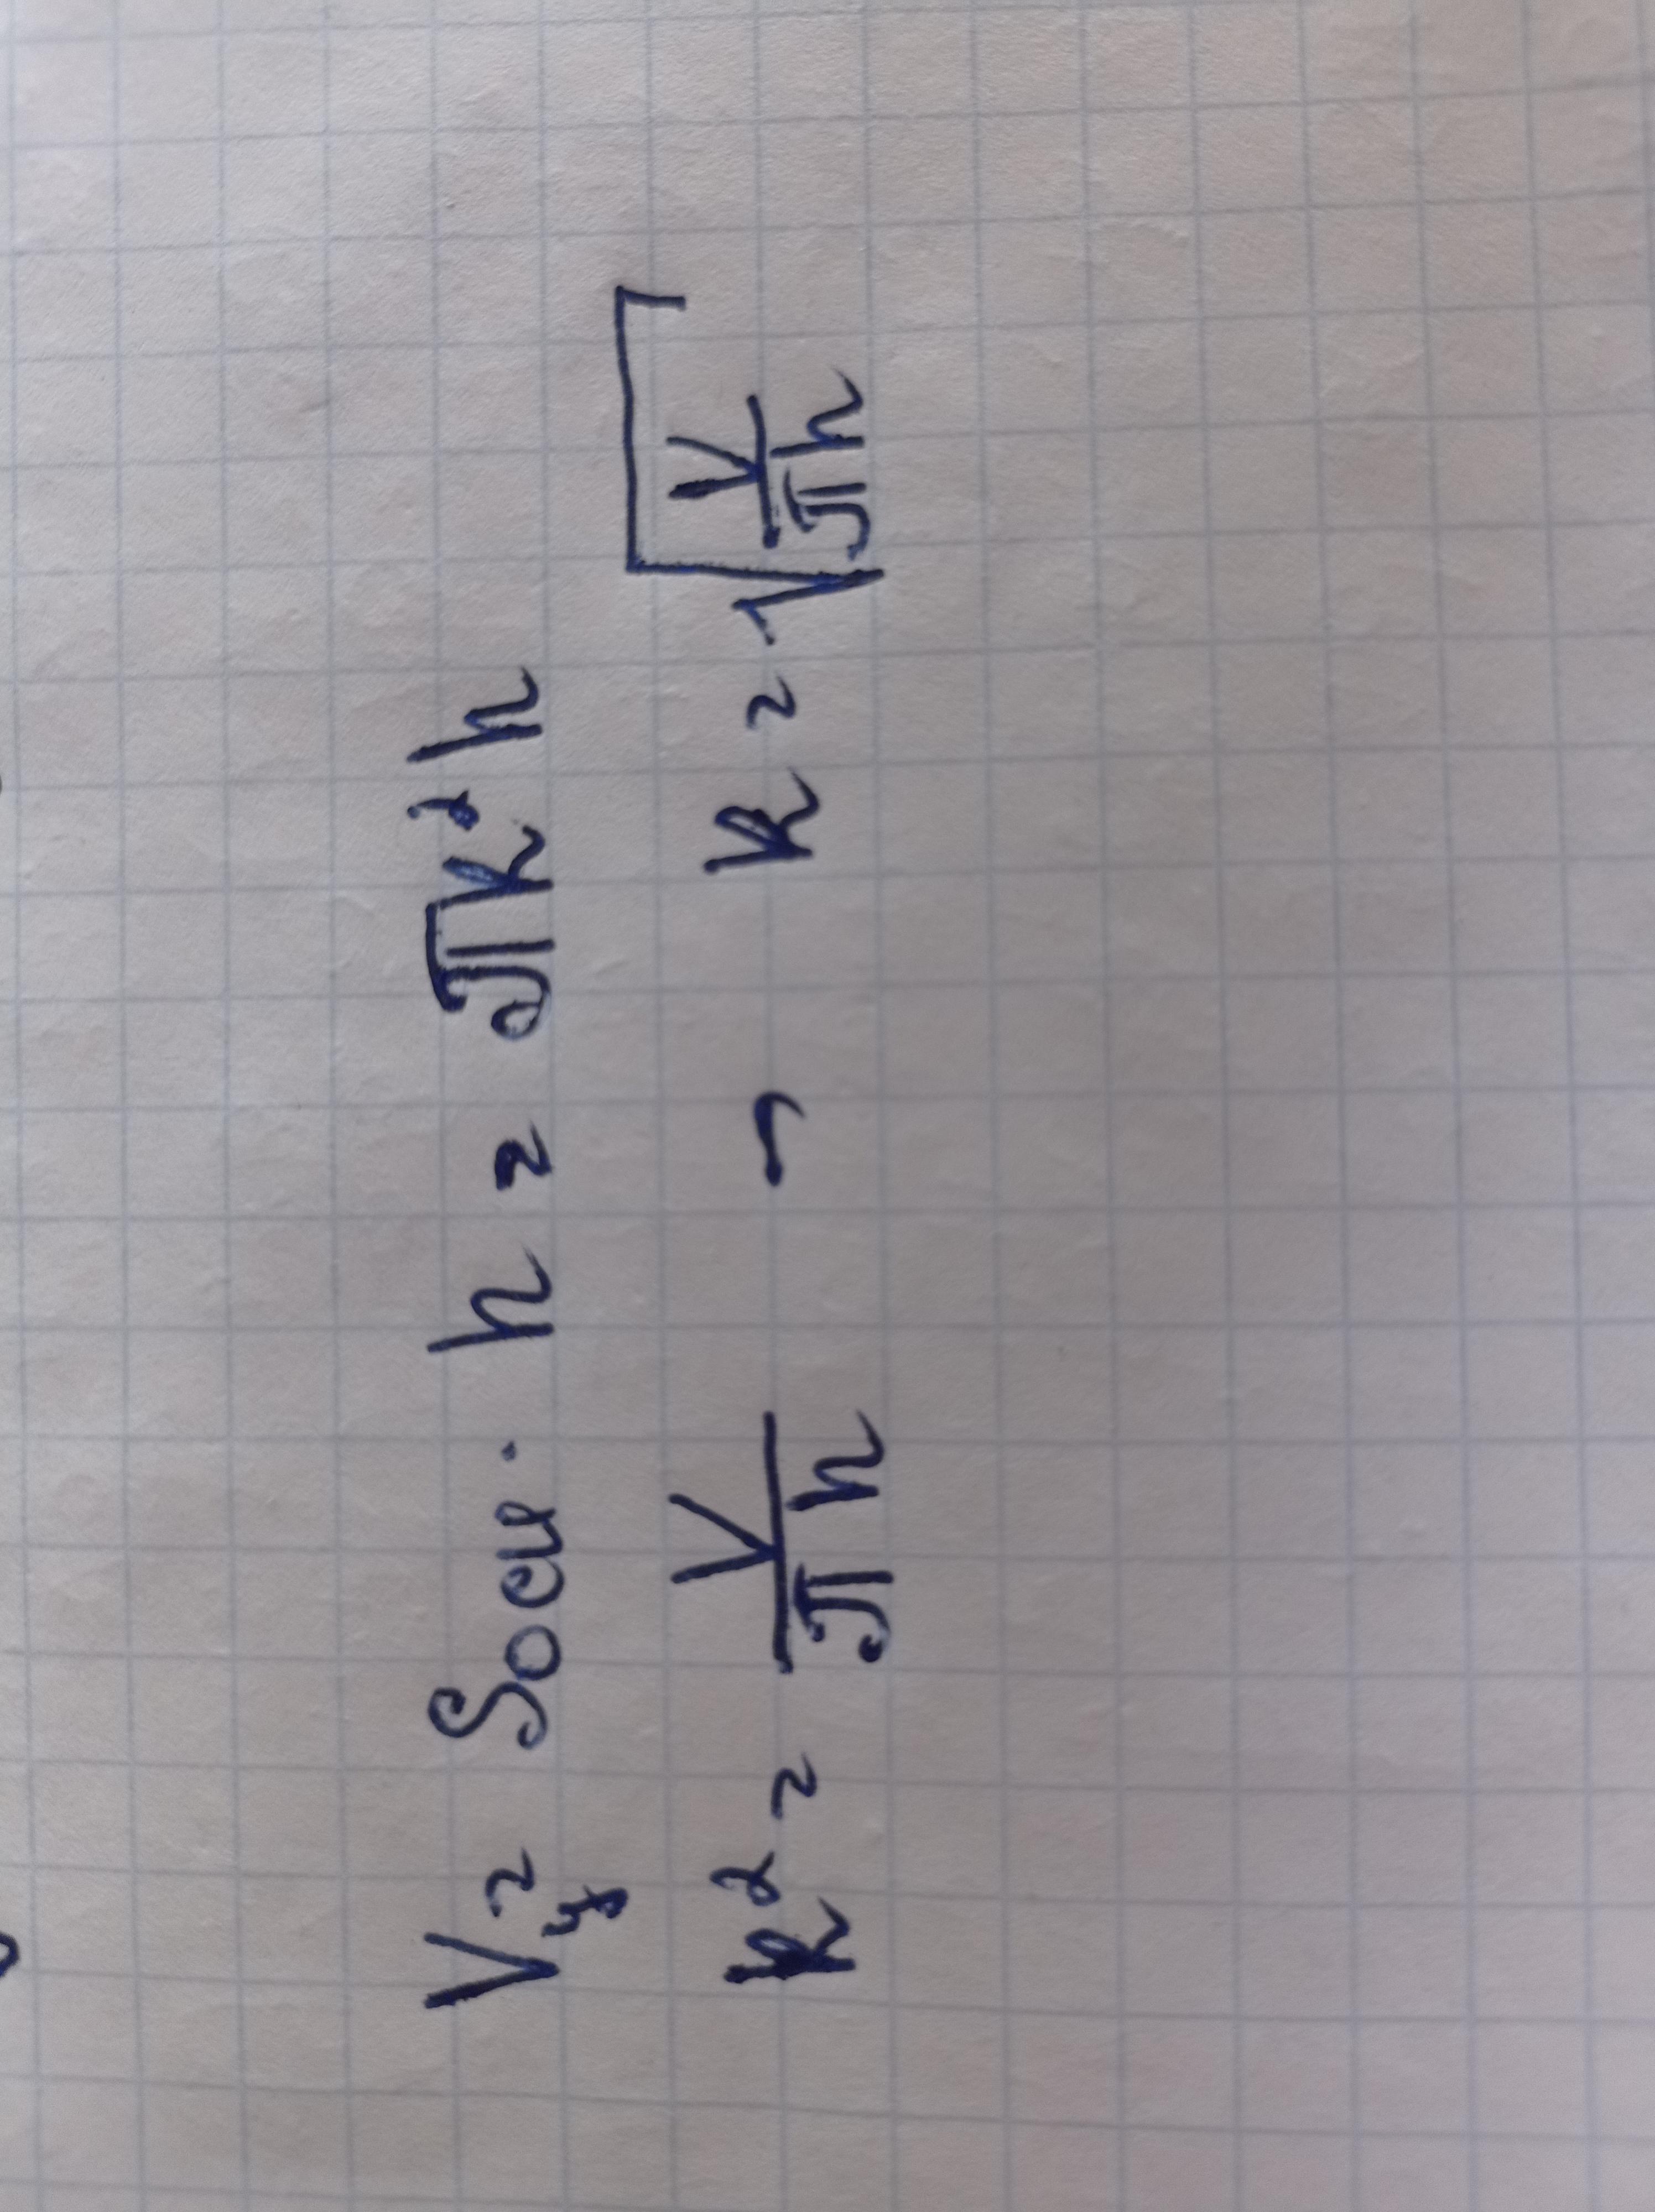 Vц = Sосн · h = πR²h
R² = V/πh ⇒ R = √(V/πh)